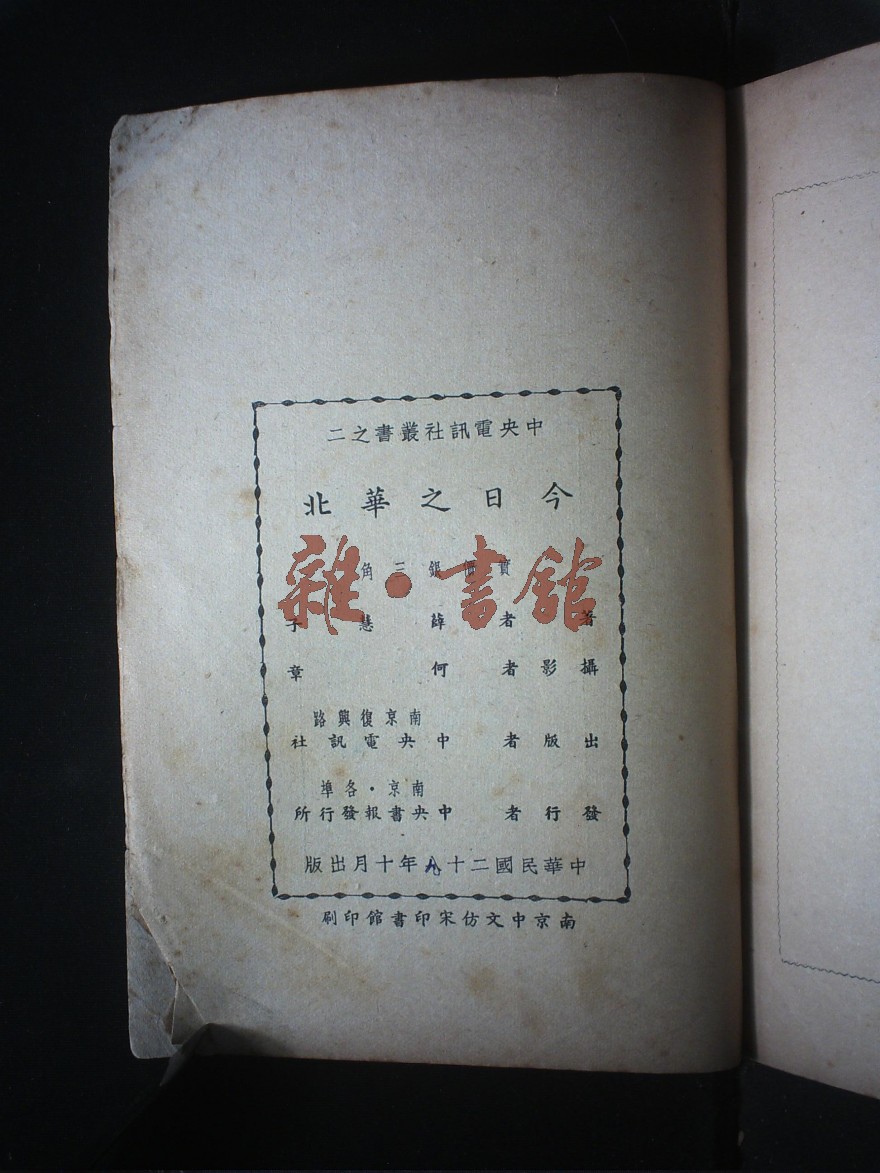 中央電訊社叢書之二
今日之華北
實價銀三角
著者 薛慧子
攝影者 何章
南京復興路
出版者 中央電訊社
南京·各埠
發行者 中央書報發行所
中華民國二十九年十月出版
南京中文仿宋印書館印刷
雜·書館